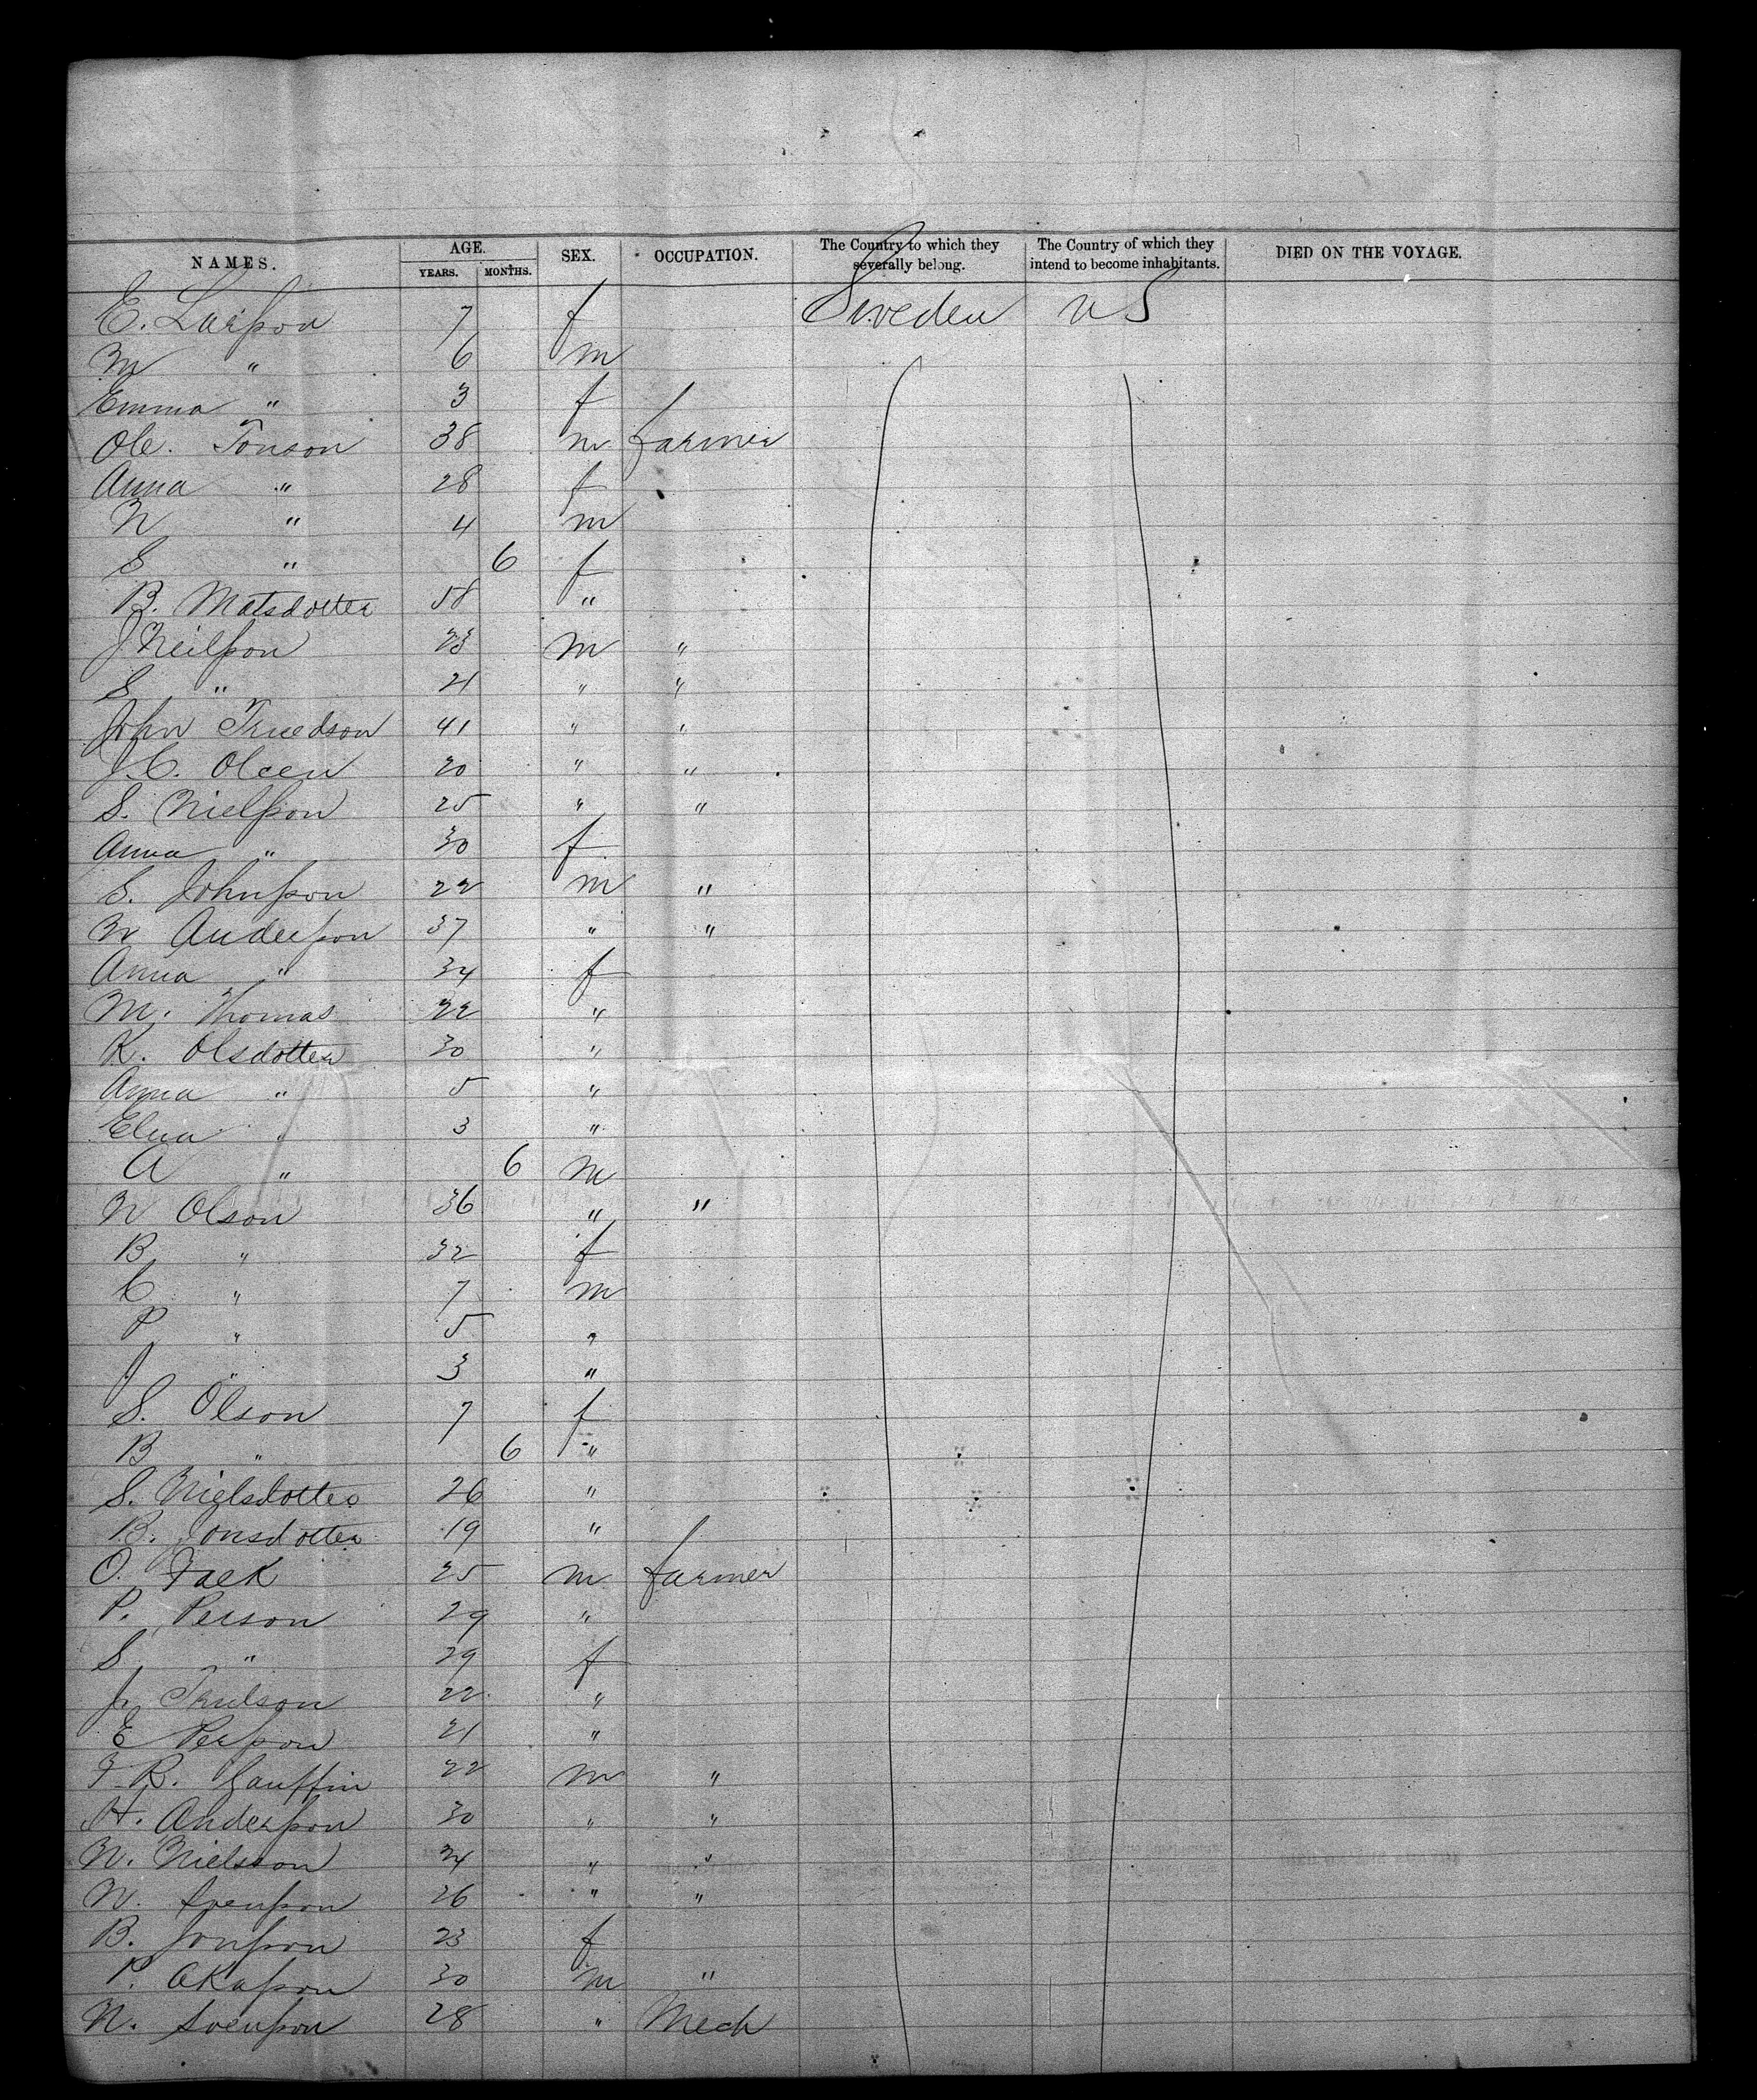 NAMES. AGE. YEARS. MONTHS. SEX. OCCUPATION. The Country to which they severally belong. The Country of which they intend to become inhabitants. DIED ON THE VOYAGE.
E. Larsson 7 f Sweden U S
M " 6 m
Emma " 3 f
Ole. Tonson 38 m farmer
Anna " 28 f
N " 4 m
S " 6 f
B. Matsdotter 58 "
J Neilsson 23 m "
S " 21 " "
John Truedson 41 " "
J. C. Olcen 20 " "
S. Nielsson 25 " "
Anna " 30 f
S. Johnsson 22 m "
N Andersson 37 " "
Anna " 34 f
M. Thomas 22 "
K. Olsdotter 30 "
Anna " 5 "
Elna " 3 "
A " 6 m
N Olson 36 " "
B " 32 f
C " 7 m
P " 5 "
J " 3 "
S. Olson 7 f
B " 6 "
S. Nielsdotter 26 "
B. Jonsdotter 19 "
O. Falk 25 m farmer
P. Person 29 "
S " 29 f
J. Trulson 22 "
E Persson 21 "
F. R. Gauffin 22 m "
H. Andersson 30 " "
N. Nielsson 24 " "
N. Svensson 26 " "
B. Jonsson 23 f
P. Akasson 30 m "
N. Svensson 28 " Mech